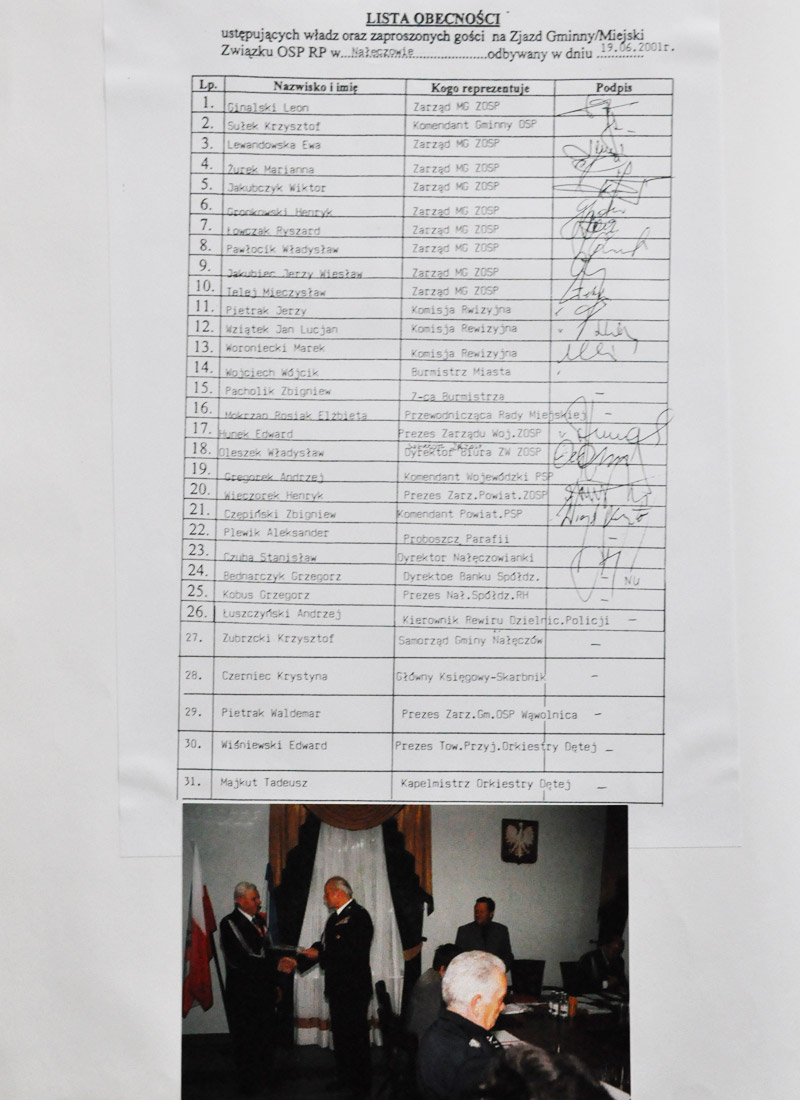 LISTA OBECNOŚCI
ustępujących władz oraz zaproszonych gości na Zjazd Gminny/Miejski
Związku OSP RP w...Nałęczowie...odbywany w dniu 19.06.2001r.
Lp. Nazwisko i imię Kogo reprezentuje Podpis
1. Ginalski Leon Zarząd MG ZOSP
2. Sułek Krzysztof Komendant Gminny OSP
3. Lewandowska Ewa Zarząd MG ZOSP
4. Żurek Marianna Zarząd MG ZOSP
5. Jakubczyk Wiktor Zarząd MG ZOSP
6. Gronkowski Henryk Zarząd MG ZOSP
7. Łowczak Ryszard Zarząd MG ZOSP
8. Pawłocik Władysław Zarząd MG ZOSP
9. Jakubiec Jerzy Wiesław Zarząd MG ZOSP
10. Telej Mieczysław Zarząd MG ZOSP
11. Pietrak Jerzy Komisja Rwizyjna
12. Wziątek Jan Lucjan Komisja Rewizyjna
13. Woroniecki Marek Komisja Rewizyjna
14. Wojciech Wójcik Burmistrz Miasta
15. Pacholik Zbigniew Z-ca Burmistrza –
16. Mokrzan Rosiak Elżbieta Przewodnicząca Rady Miejskiej –
17. Hunek Edward Prezes Zarządu Woj.ZOSP
18. Oleszek Władysław Dyrektor Biura ZW ZOSP
19. Gregorek Andrzej Komendant Wojewódzki PSP
20. Wieczorek Henryk Prezes Zarz.Powiat.ZOSP
21. Czępiński Zbigniew Komendant Powiat.PSP
22. Plewik Aleksander Proboszcz Parafii –
23. Czuba Stanisław Dyrektor Nałęczowianki
24. Bednarczyk Grzegorz Dyrektoe Banku Spółdz. – NU
25. Kobus Grzegorz Prezes Nał.Spółdz.RH –
26. Łuszczyński Andrzej Kierownik Rewiru Dzielnic.Policji –
27. Zubrzcki Krzysztof Samorząd Gminy Nałęczów –
28. Czerniec Krystyna Główny Księgowy-Skarbnik –
29. Pietrak Waldemar Prezes Zarz.Gm.OSP Wąwolnica –
30. Wiśniewski Edward Prezes Tow.Przyj.Orkiestry Dętej –
31. Majkut Tadeusz Kapelmistrz Orkiestry Dętej –